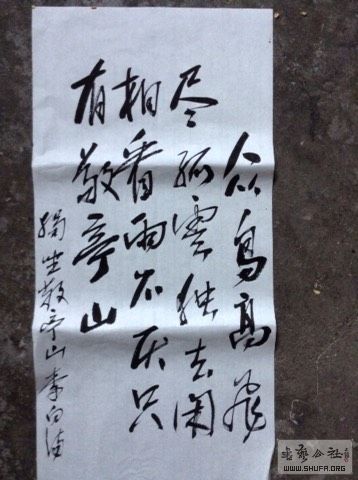 众鸟高飞
尽孤云独去闲
相看两不厌只
有敬亭山
独坐敬亭山李白诗
书艺公社
WWW.SHUFA.ORG